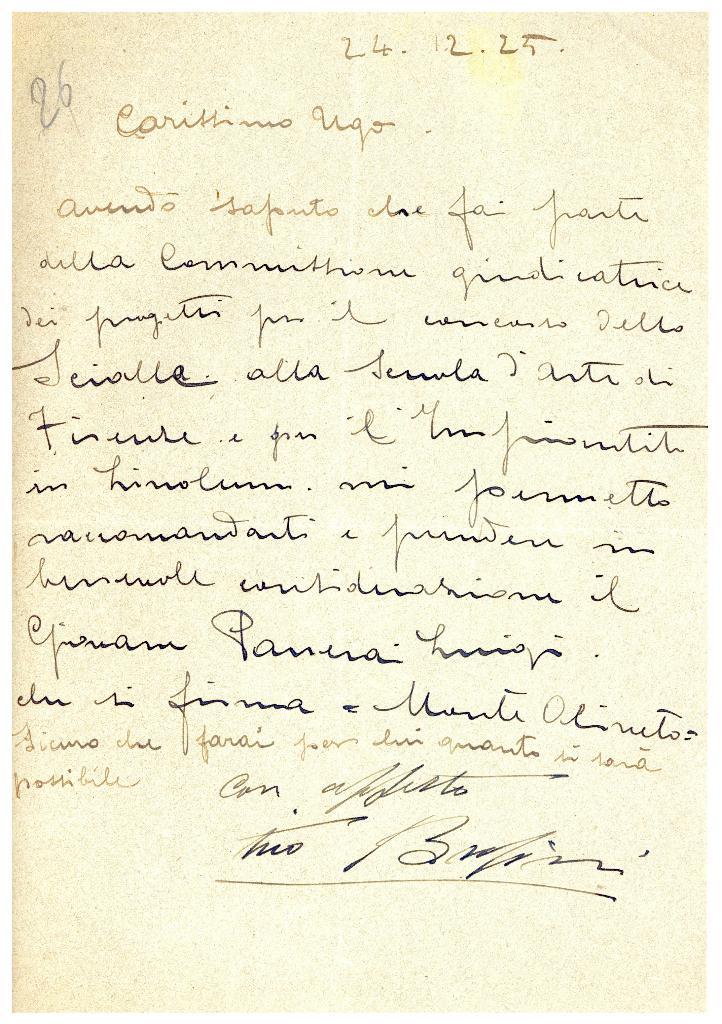 24. 12. 25.
26
Carissimo Ugo.
avendo saputo che fai parte
della Commissione giudicatrice
dei progetti per il concorso dello
Scialle. alla Scuola d'Arte di
Firenze. e per l'Impiantito
in Linoleum. mi permetto
raccomandarti e prendere in
benevole considerazione il
Giovane Panerai Luigi.
che si firma = Monte Oliveto =
Sicuro che farai per lui quanto ti sarà
possibile
con affetto
tuo